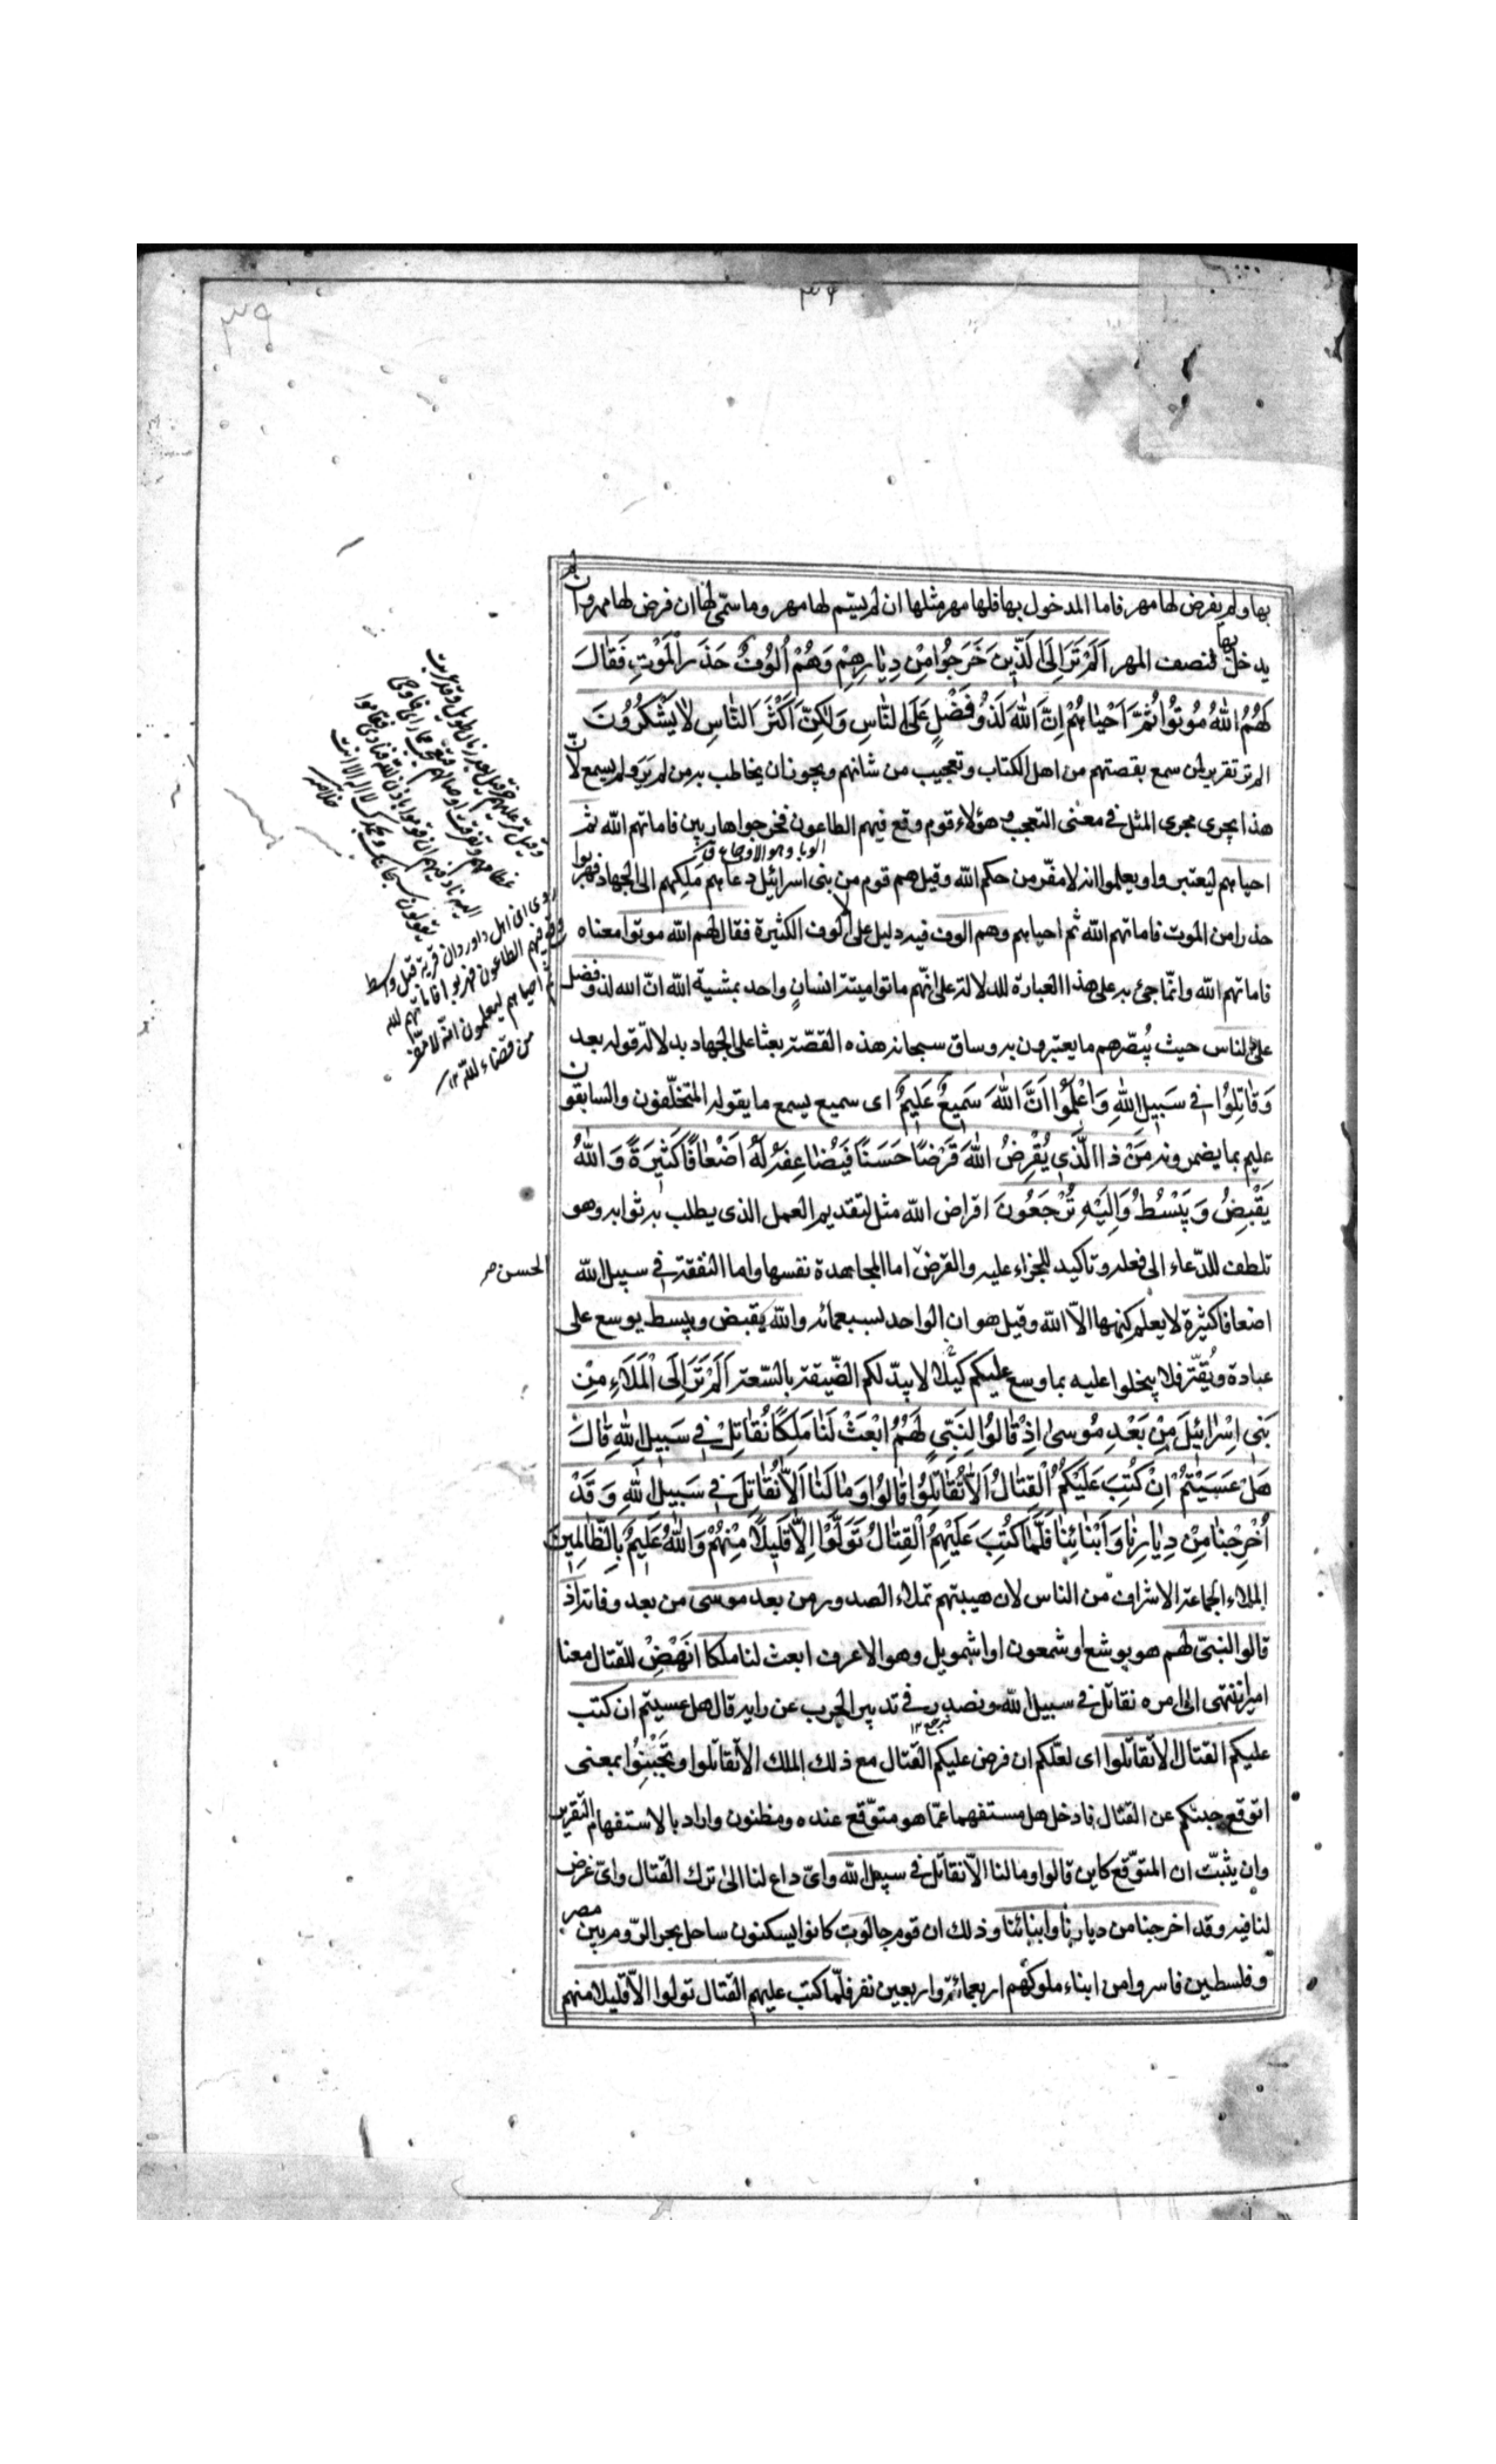 ٣٩
٣٩
بها ولم يفرض لها مهر فاما المدخول بها فلها مهر مثلها ان لم يسّم لها مهر وما سمّى لها ان فرض لها مهر وان لم
يدخل بها فنصف المهر اَلَمْ تَرَ اِلَى الَّذِينَ خَرَجُوا مِنْ دِيَارِهِمْ وَهُمْ اُلُوفٌ حَذَرَ الْمَوْتِ فَقَالَ
لَهُمُ اللهُ مُوتُوا ثُمَّ اَحْيَاهُمْ اِنَّ اللهَ لَذُو فَضْلٍ عَلَى النَّاسِ وَلٰكِنَّ اَكْثَرَ النَّاسِ لَا يَشْكُرُونَ
الم تر تقرير لمن سمع بقصتهم من اهل الكتاب وتعجيب من شانهم ويجوز ان يخاطب به من لم يَرَ ولم يسمع لان
هذا يجرى مجرى المثل فى معنى التعجب وهؤلاء قوم وقع فيهم الطاعون فخرجوا هاربين فاماتهم الله ثم
احياهم ليعتبروا ويعلموا انه لا مفّر من حكم الله وقيل هم قوم من بنى اسرائيل دعاهم مَلِكهم الى الجهاد فهربوا
حذرا من الموت فاماتهم الله ثم احياهم وهم الوف فيه دليل على الالوف الكثيرة فقال لهم الله موتوا معناه
فاماتهم الله وانّما جئ به على هذا العبارة للدلالة على انّهم ماتوا ميتة انسانٍ واحد بمشية الله انّ الله لذو فضل
على الناس حيث يُبصّرهم ما يعتبرون به وساق سبحانه هذه القصّة بعثا على الجهاد بدلالة قوله بعد
وَقَاتِلُوا فِى سَبِيلِ اللهِ وَاعْلَمُوا اَنَّ اللهَ سَمِيعٌ عَلِيمٌ اى سميع يسمع ما يقوله المتخلّفون والسابقون
عليم بما يضمرونه مَنْ ذَا الَّذِى يُقْرِضُ اللهَ قَرْضًا حَسَنًا فَيُضَاعِفَهُ لَهُ اَضْعَافًا كَثِيرَةً وَاللهُ
يَقْبِضُ وَيَبْسُطُ وَاِلَيْهِ تُرْجَعُونَ اقراض الله مثل لتقديم العمل الذى يطلب به ثوابه وهو
تلطف للدّعاء الى فعله وتاكيد للجزاء عليه والقرض اما المجاهدة نفسها واما النفقة فى سبيل الله
الحسن صر
اضعافا كثيرة لا يعلم كنهها الّا الله وقيل هو ان الواحد لسبعمائه والله يقبض ويبسط يوسع على
عباده ويُقتّر فلا يبخلوا عليه بما وسع عليكم كيلا لا يبدّلكم الضّيقة بالسّعة اَلَمْ تَرَ اِلَى الْمَلَاءِ مِنْ
بَنِى اِسْرَائِيلَ مِنْ بَعْدِ مُوسٰى اِذْ قَالُوا لِنَبِىٍّ لَهُمُ ابْعَثْ لَنَا مَلِكًا نُقَاتِلْ فِى سَبِيلِ اللهِ قَالَ
هَلْ عَسَيْتُمْ اِنْ كُتِبَ عَلَيْكُمُ الْقِتَالُ اَلَّا تُقَاتِلُوا قَالُوا وَمَا لَنَا اَلَّا نُقَاتِلَ فِى سَبِيلِ اللهِ وَقَدْ
اُخْرِجْنَا مِنْ دِيَارِنَا وَاَبْنَائِنَا فَلَمَّا كُتِبَ عَلَيْهِمُ الْقِتَالُ تَوَلَّوْا اِلَّا قَلِيلًا مِنْهُمْ وَاللهُ عَلِيمٌ بِالظَّالِمِينَ
الملاء الجماعة الاشراف من الناس لان هيبتهم تملاء الصدور من بعد موسى من بعد وفاته اذ
قالوا لنبىّ لهم هو يوشع او شمعون او اشمويل وهو الاعرف ابعث لنا ملكا انَهْضْ للقتال معنا
اميرا ننتهى الى امره نقاتل فى سبيل الله ونصدر فى تدبير الحرب عن رايه قال هل عسيتم ان كتب
عليكم القتال الّا تقاتلوا اى لعلّكم ان فرض عليكم القتال مع ذلك الملك الّا تقاتلوا وتَجْبُنوا بمعنى
اتوقع جبنكم عن القتال فادخل هل مستفهما عمّا هو متوّقع عنده ومظنون واراد بالاستفهام التقرير
وان يثبّت ان المتوقّع كاين قالوا وما لنا الّا نقاتل فى سبيل الله واىّ داع لنا الى ترك القتال واىّ غرض
لنا فيه وقد اخرجنا من ديارنا وابنائنا وذلك ان قوم جالوت كانوا يسكنون ساحل بحر الرّوم بين مصر
وفلسطين فاسروا من ابناء ملوكهم اربعمائة واربعين نفر فلّما كتب عليهم القتال تولوا الّا قليلا منهم
روى ان اهل داوردان قرية قبل واسط
وقع فيهم الطاعون فهربوا فاماتهم الله
ثم احياهم ليعلمون انّه لا مفّر
من قضاء الله ١٢